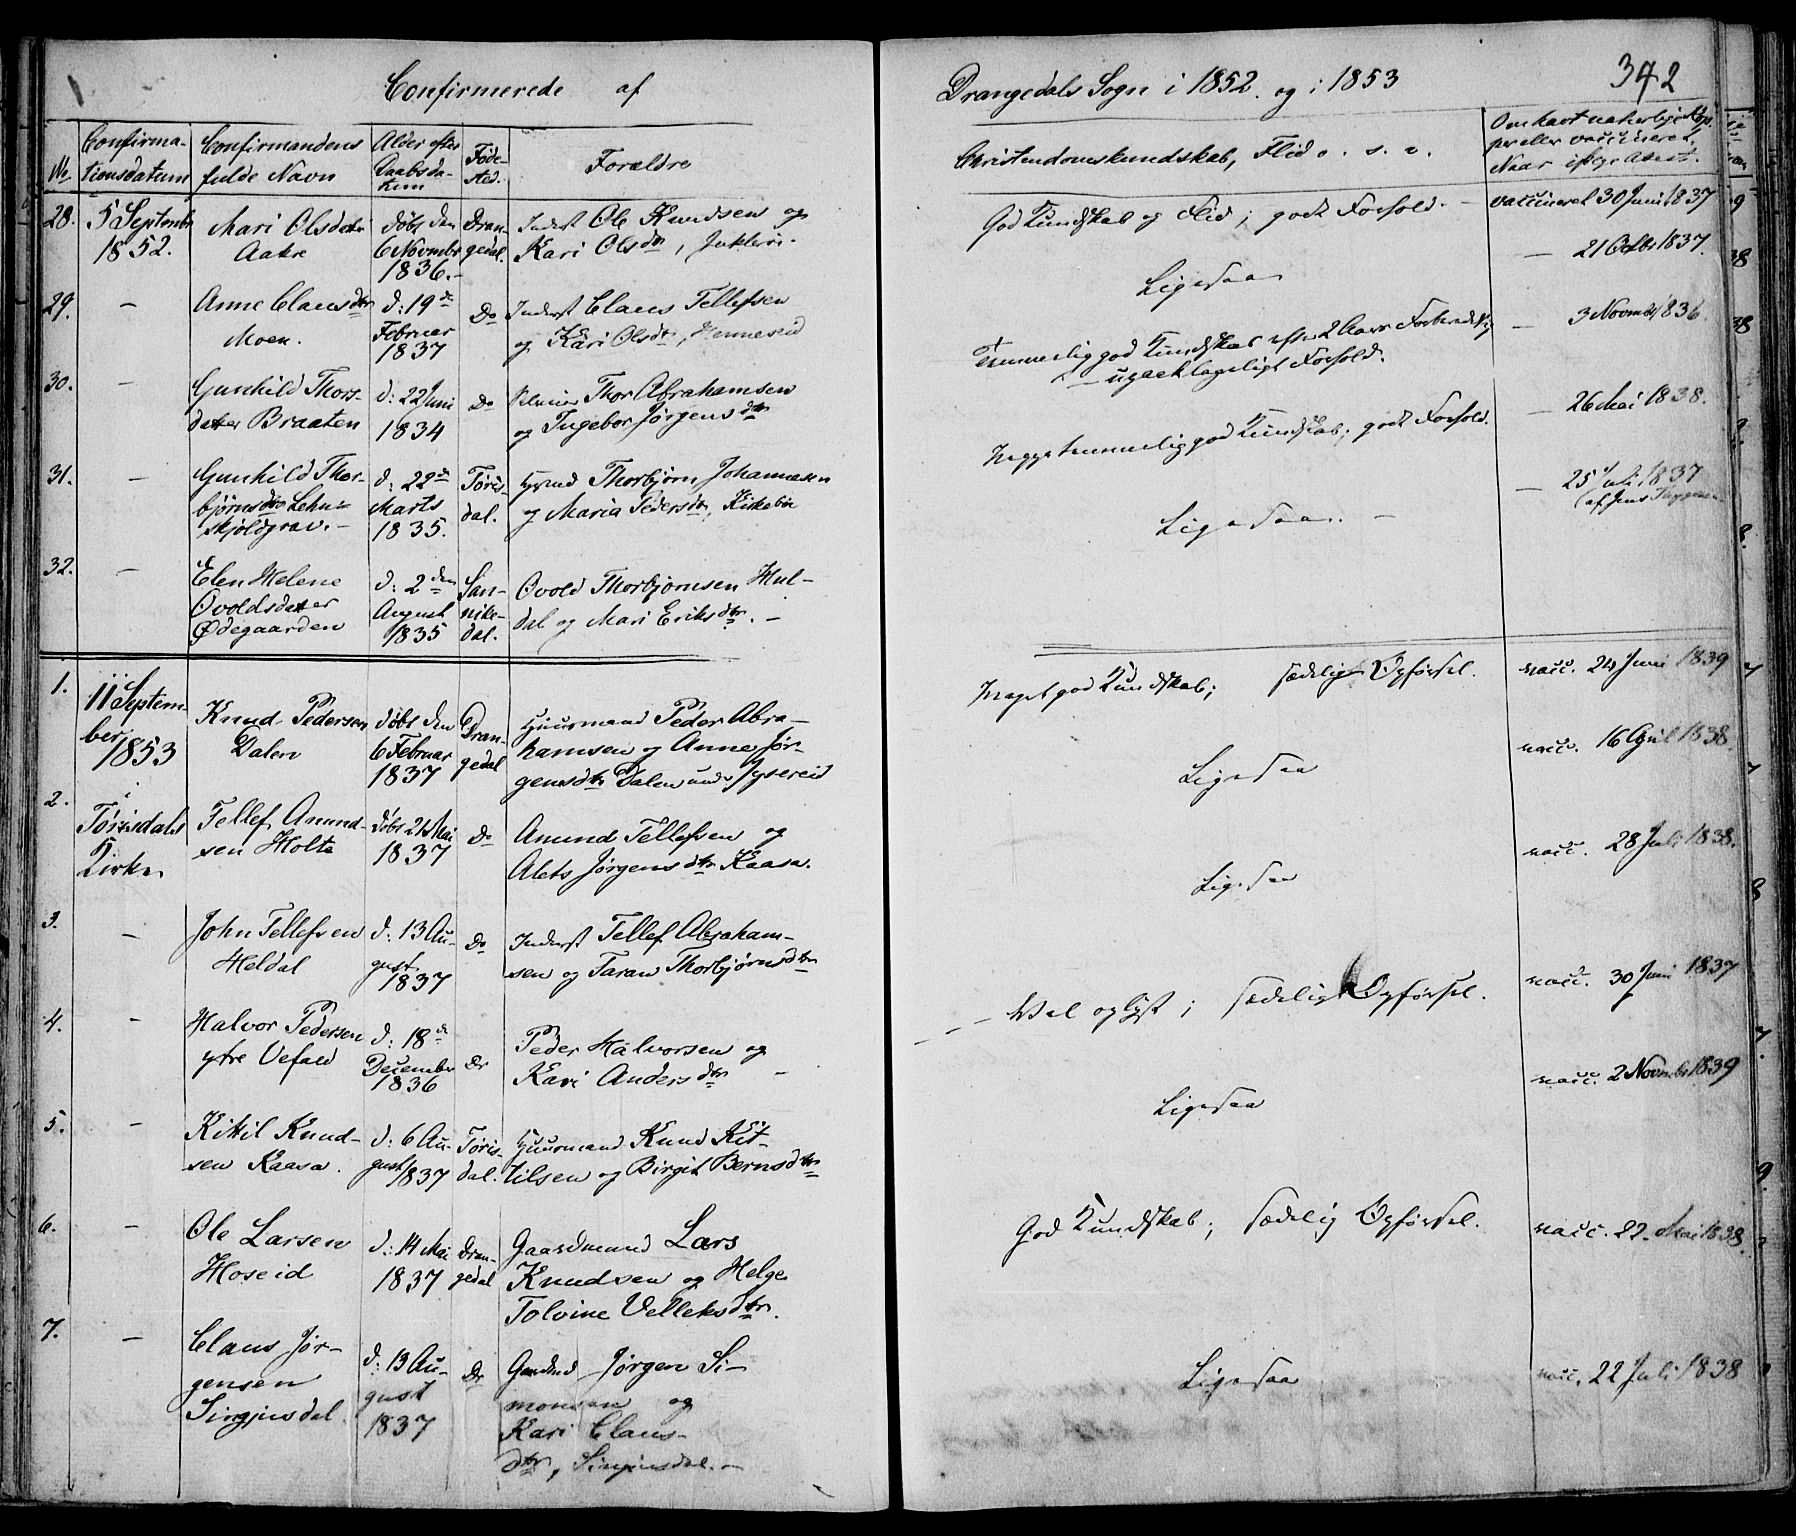 Confirmerede af Drangedals Sogn i 1852 og i 1853
342
No
Confirma-
tionsdatum
Confirmandens
fulde Navn
Alder efter
Daabsda-
tum
Føde-
sted.
Forældre
Christendomskundskab, Flid o. s. v.
Om havt naturlige Kop
per eller vaccineret,
Naar ifølge Attest.
28.
5 Septembr
1852.
Mari Olsdatter
Aakre
døbt den
6 Novembr
1836.-
Dran-
gedal.
Inderst Ole Knudsen og
Kari Olsdtr,
God Kundskab og Flid; godt Forhold.
vaccineret 30 Juni 1837
29.
-
Anne Clausdtr
Moen.
d: 19de
Februar
1837
Do
Inderst Claus Tellefsen
og Kari Olsdtr, Henneseid
Ligesaa
- 21 Octbr 1837.
30.
-
Gunhild Thors-
datter Braaten
d: 22 Juni
1834
Do
Thor Abrahamsen
og Ingebor Jørgensdtr
Temmelig god Kundskab efter 2 Aars Forberedelse
- upaaklageligt Forhold.
- 3 Novmbr 1836
31.
-
Gunhild Thor-
bjørnsdtr Lehn-
skjoldgrav.-
d: 22de
Marts
1835.
Tøris-
dal.
Thorbjørn Johannesen
og Maria Pedersdtr, Kirkebø
temmelig god Kundskab; godt Forhold.
- 26 Mai 1838.
32.
-
Elen Helene
Ovoldsdatter
Ødegaarden
d: 2den
August
1835
San-
nike-
dal.
Ovold Thorbjørnsen Hul-
dal og Mari Eriksdtr. -
Ligesaa. -
- 25 Juli 1837
(af Jens
1.
11 Septem-
ber
1853
i
Tørisdals
Kirke
Knud Pedersen
Dalen
døbt den
6 Februar
1837
Dran-
gedal
Huusmand Peder Abra-
hamsen og Anne Jør-
gensdtr Dalen under
Meget god Kundskab; sædelig Opførsel.
vacc. 24 Juni 1839
2.
Tellef Amund-
sen Holte
døbt 21 Mai
1837
Do
Amund Tellefsen og
Alets Jørgensdtr Kaasa.
Ligesaa
vacc. 16 April 1838.
3.
-
John Tellefsen
Heldal
d: 13 Au-
gust
1837
Do
Inderst Tellef Abraham-
sen og Taran Thorbjørnsdtr
Ligesaa
vacc. 28 Juli 1838.
4.
-
Halvor Pedersen
ytre Vefald
d: 18de
December
1836
Do
Peder Halvorsen og
Kari Andersdtr -
- - Vel oplyst; sædelig Opførsel.
vacc. 30 Juni 1837
5.
-
Kittil Knud-
sen Kaasa.
d: 6 Au-
gust 1837
Tøris-
dal.
Huusmand Knud Kit-
tilsen og Birgit Bernsdtr
Ligesaa
vacc. 2 Novmbr 1839
6.
-
Ole Larsen
Hoseid
d: 14 Mai
1837
Dran-
gedal
Gaardmand Lars
Knudsen og Helge
Tolvine Velleksdtr.
God Kundskab; sædelig Opførsel.
vacc. 22 Mai 1838.
7.
-
Claus Jør-
gensen
Singjusdal.
d: 13 Au-
gust
1837
Do
Jørgen Si-
monsen og
Kari Claus-
dtr, Singjusdal. -
Ligesaa
vacc. 22 Juli 1838